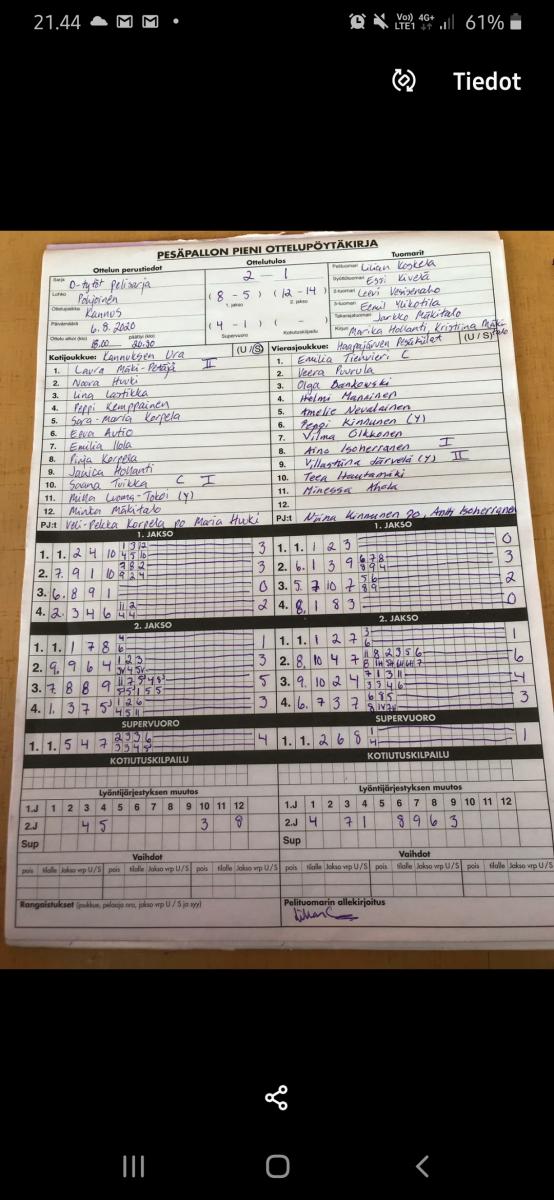 21.44
Vo)) 4G+
LTE1
61%
Tiedot
PESÄPALLON PIENI OTTELUPÖYTÄKIRJA
Ottelun perustiedot
Ottelutulos
Tuomarit
Sarja D-tytöt pelisarja
Lohko Pohjoinen
Ottelupaikka Kannus
Päivämäärä 6.8.2020
Ottelu alkoi (klo) 18.00 päättyi (klo) 20.30
2 - 1
(8 - 5) (12 - 14)
1. jakso 2. jakso
(4 - 1) ( - )
Supervuoro Kotiutuskilpailu
Pelituomari Lilian Koskela
Syöttötuomari Essi Kivelä
2-tuomari Leevi Vesisenaho
3-tuomari Eemil Ylikotila
Takarajatuomari Jarkko Mäkitalo
Kirjuri Marika Hollanti, Kristiina Mäkitalo
Kotijoukkue: Kannuksen Ura (U/S)
1. Laura Mäki-Petäjä II
2. Noora Huuki
3. Iina Lastikka
4. Peppi Kemppainen
5. Sara-Maria Korpela
6. Eeva Autio
7. Emilia Ilola
8. Pinja Korpela
9. Janica Hollanti
10. Saana Tuikka C I
11. Milla Luoma-Tokoi (Y)
12. Minka Mäkitalo
PJ:t Veli-Pekka Korpela po Maria Huuki
Vierasjoukkue: Haapajärven Pesäkiilat (U / S)
1. Emilia Tienvieri C
2. Veera Puurula
3. Olga Bankowski
4. Helmi Manninen
5. Amelie Nevalainen
6. Pengi Kinnunen (Y)
7. Vilma Ölkkönen
8. Aino Isoherranen I
9. Villastiina Järvelä (Y) II
10. Teea Hautamäki
11. Minessa Ahola
12.
PJ:t Niina Kinnunen po, Antti Isoherranen
1. JAKSO
1. 1. 2 4 10 3
2. 7. 9 1 10 3
3. 6. 8 9 1 0
4. 2. 3 4 6 2
1. JAKSO
1. 1. 1 2 3 0
2. 6. 1 3 9 3
3. 5. 7 10 7 2
4. 8. 1 8 3 0
2. JAKSO
1. 1. 1 7 8 1
2. 9. 9 6 4 3
3. 7. 8 8 9 5
4. 1. 3 7 5 3
2. JAKSO
1. 1. 1 2 7 1
2. 8. 10 4 7 6
3. 9. 10 2 4 4
4. 6. 7 3 7 3
SUPERVUORO
1. 1. 5 4 7 4
SUPERVUORO
1. 1. 2 6 8 1
KOTIUTUSKILPAILU
KOTIUTUSKILPAILU
Lyöntijärjestyksen muutos
1.J 1 2 3 4 5 6 7 8 9 10 11 12
2.J 4 5 3 8
Sup
Lyöntijärjestyksen muutos
1.J 1 2 3 4 5 6 7 8 9 10 11 12
2.J 4 7 1 8 9 6 3
Sup
Vaihdot
pois tilalle Jakso vrp U/S pois tilalle Jakso vrp U/S pois tilalle Jakso vrp U/S
Vaihdot
pois tilalle Jakso vrp U/S pois tilalle Jakso vrp U/S pois tilalle Jakso vrp U/S
Rangaistukset (joukkue, pelaaja nro, jakso vrp U / S ja syy)
Pelituomarin allekirjoitus